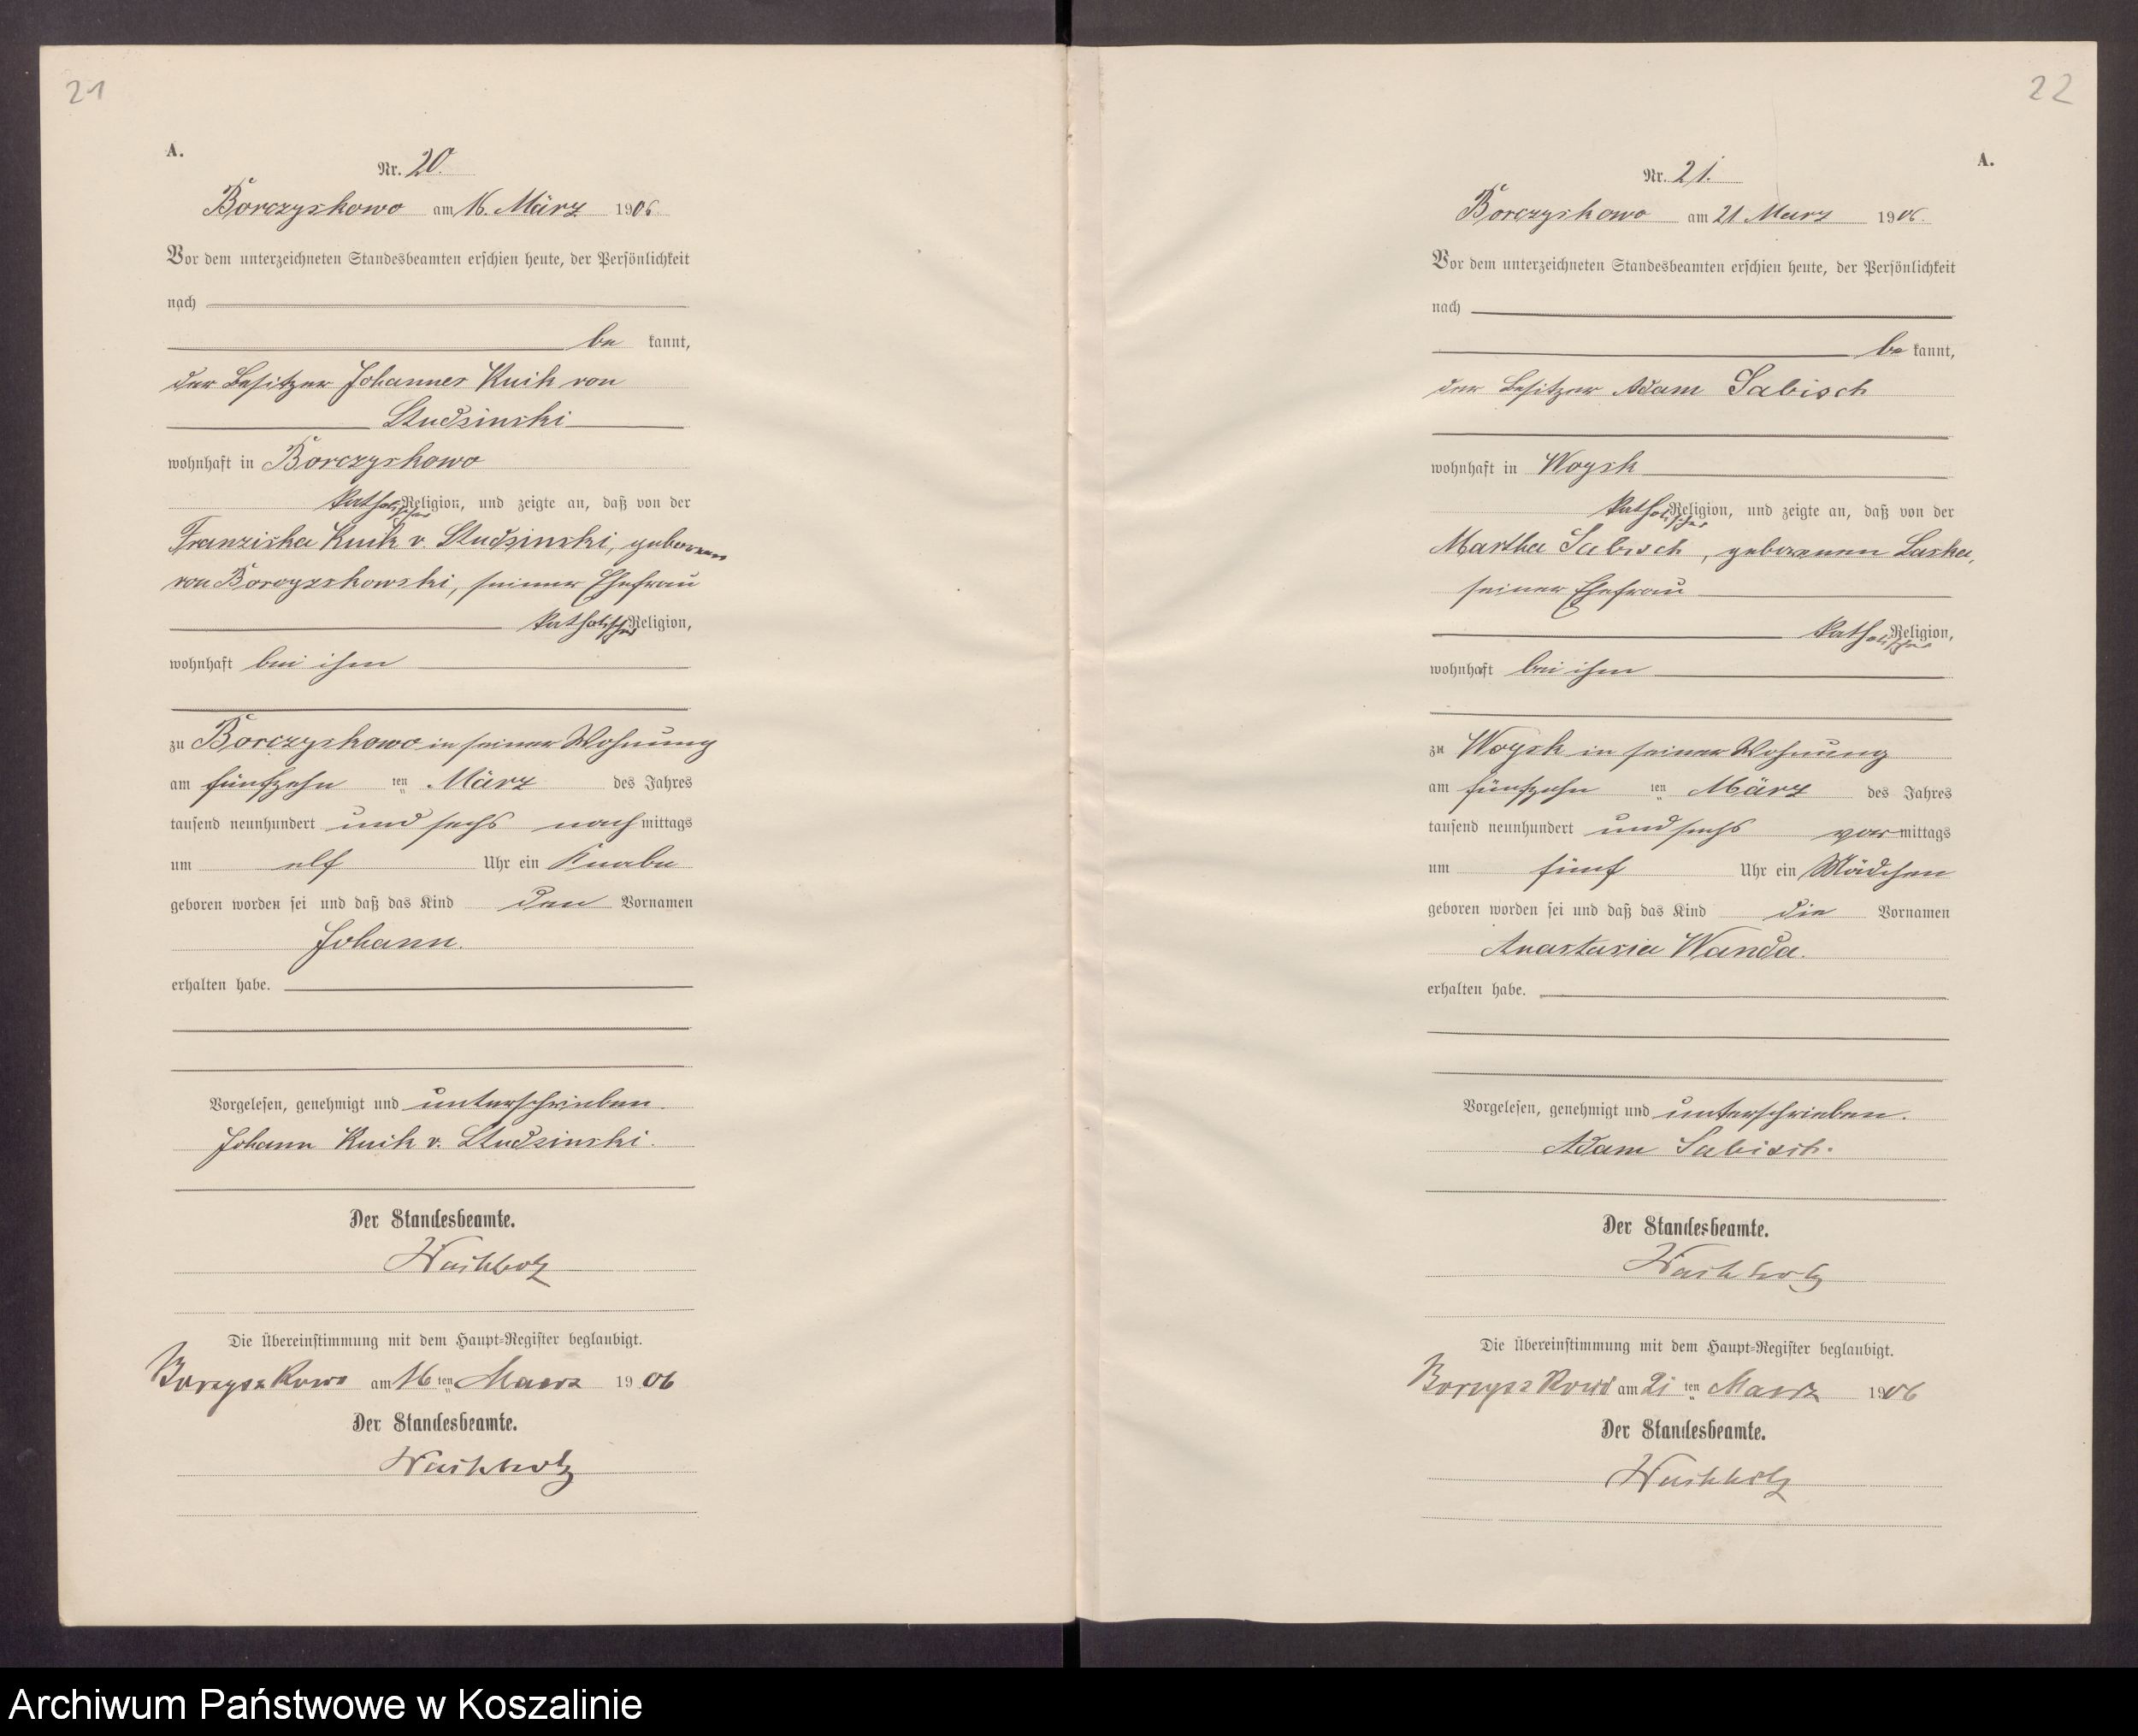 21
A.
Nr. 20.
Borczyskowo am 16. März 1906.
Vor dem unterzeichneten Standesbeamten erschien heute, der Persönlichkeit
nach
be kannt,
der Besitzer Johannes Kuik von
Studsinski
wohnhaft in Borczyskowo
katholischer Religion, und zeigte an, daß von der
Franziska Kuik v. Studsinski, geborenen
von Borcyszkowski, seiner Ehefrau
katholischer Religion,
wohnhaft bei ihm
zu Borczyskowo in seiner Wohnung
am fünfzehn ten März des Jahres
tausend neunhundert und sechs nach mittags
um elf Uhr ein Knabe
geboren worden sei und daß das Kind den Vornamen
Johann.
erhalten habe.
Vorgelesen, genehmigt und unterschrieben.
Johann Kuik v. Studsinski.
Der Standesbeamte.
Waschholz
Die Übereinstimmung mit dem Haupt-Register beglaubigt.
Borcyszkowo am 16 ten Maerz 1906
Der Standesbeamte.
Waschholz
22
A.
Nr. 21.
Borczyskowo am 21 März 1906.
Vor dem unterzeichneten Standesbeamten erschien heute, der Persönlichkeit
nach
be kannt,
der Besitzer Adam Sabisch
wohnhaft in Woysk
katholischer Religion, und zeigte an, daß von der
Martha Sabisch, geborenen Laska,
seiner Ehefrau
katholischer Religion,
wohnhaft bei ihm
zu Woysk in seiner Wohnung
am fünfzehn ten März des Jahres
tausend neunhundert und sechs vor mittags
um fünf Uhr ein Mädchen
geboren worden sei und daß das Kind die Vornamen
Anastasia Wanda.
erhalten habe.
Vorgelesen, genehmigt und unterschrieben.
Adam Sabisch.
Der Standesbeamte.
Waschholz
Die Übereinstimmung mit dem Haupt-Register beglaubigt.
Borcyszkowo am 21 ten Maerz 1906
Der Standesbeamte.
Waschholz
Archiwum Państwowe w Koszalinie